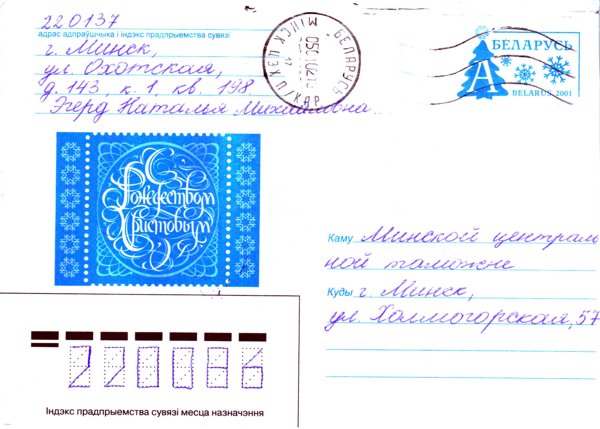 220137
адрас адпраўшчыка і індэкс прадпрыемства сувязі
г. Минск,
ул. Охотская,
д. 143, к. 1, кв. 198
Эгерд Наталья Михайловна
МІНСК БЕЛАРУСЬ
БЕЛАРУСЬ
А
BELARUS 2001
С
Рождеством
Христовым
Каму Минской централь
ной таможне
Куды г. Минск,
ул. Холмогорская, 57
220086
Індэкс прадпрыемства сувязі месца назначэння